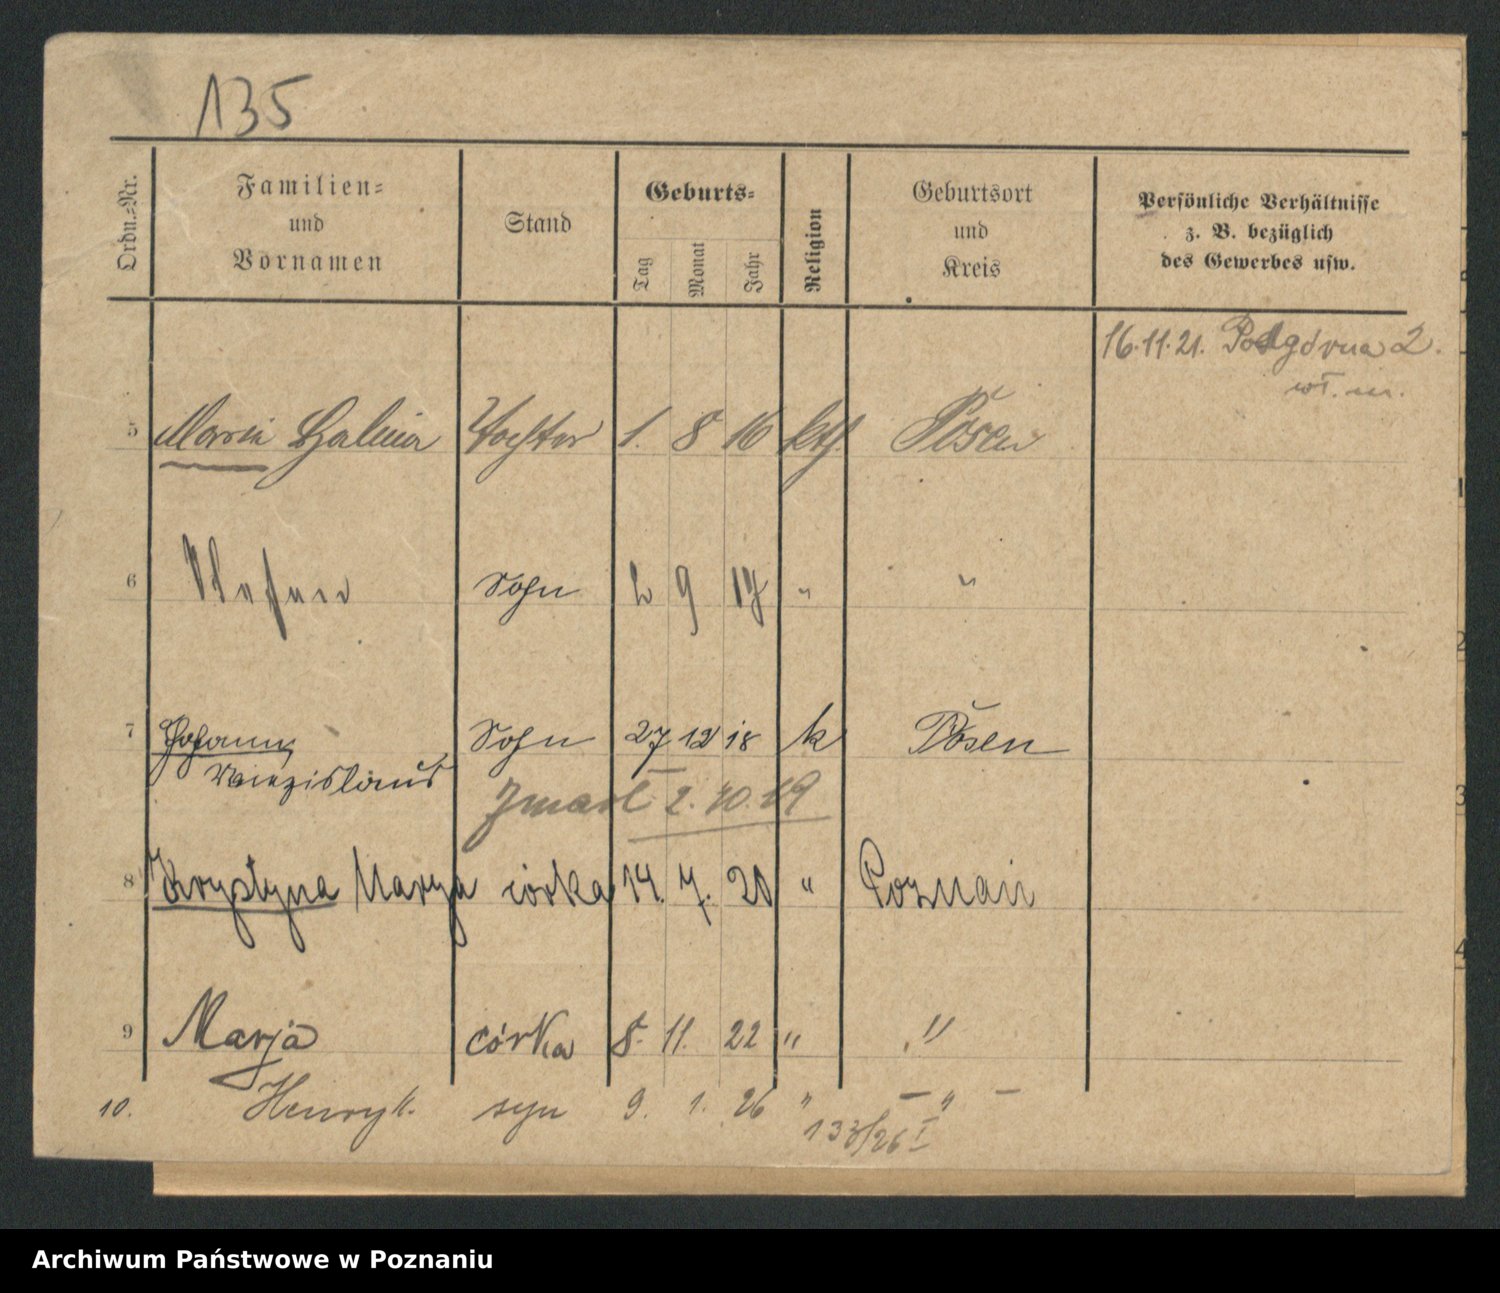 135
Ordn.-Nr.
Familien- und Vornamen
Stand
Geburts-
Tag
Monat
Jahr
Religion
Geburtsort und Kreis
Persönliche Verhältnisse z. B. bezüglich des Gewerbes usw.
16.11.21. Podgórna 2.
wł. m.
5 Maria Halina Tochter 1. 8 16 kth. Posen
6 Stefan Sohn 2 9 17 " "
7 Johann Sohn 27 12 18 k Posen
Zmarł 2.10.19
8 Krystyna Marya córka 14. 7. 20 " Poznań
9 Marja córka 8. 11. 22 " "
10. Henryk. syn 9. 1. 26 " — " —
133/26 I
Archiwum Państwowe w Poznaniu